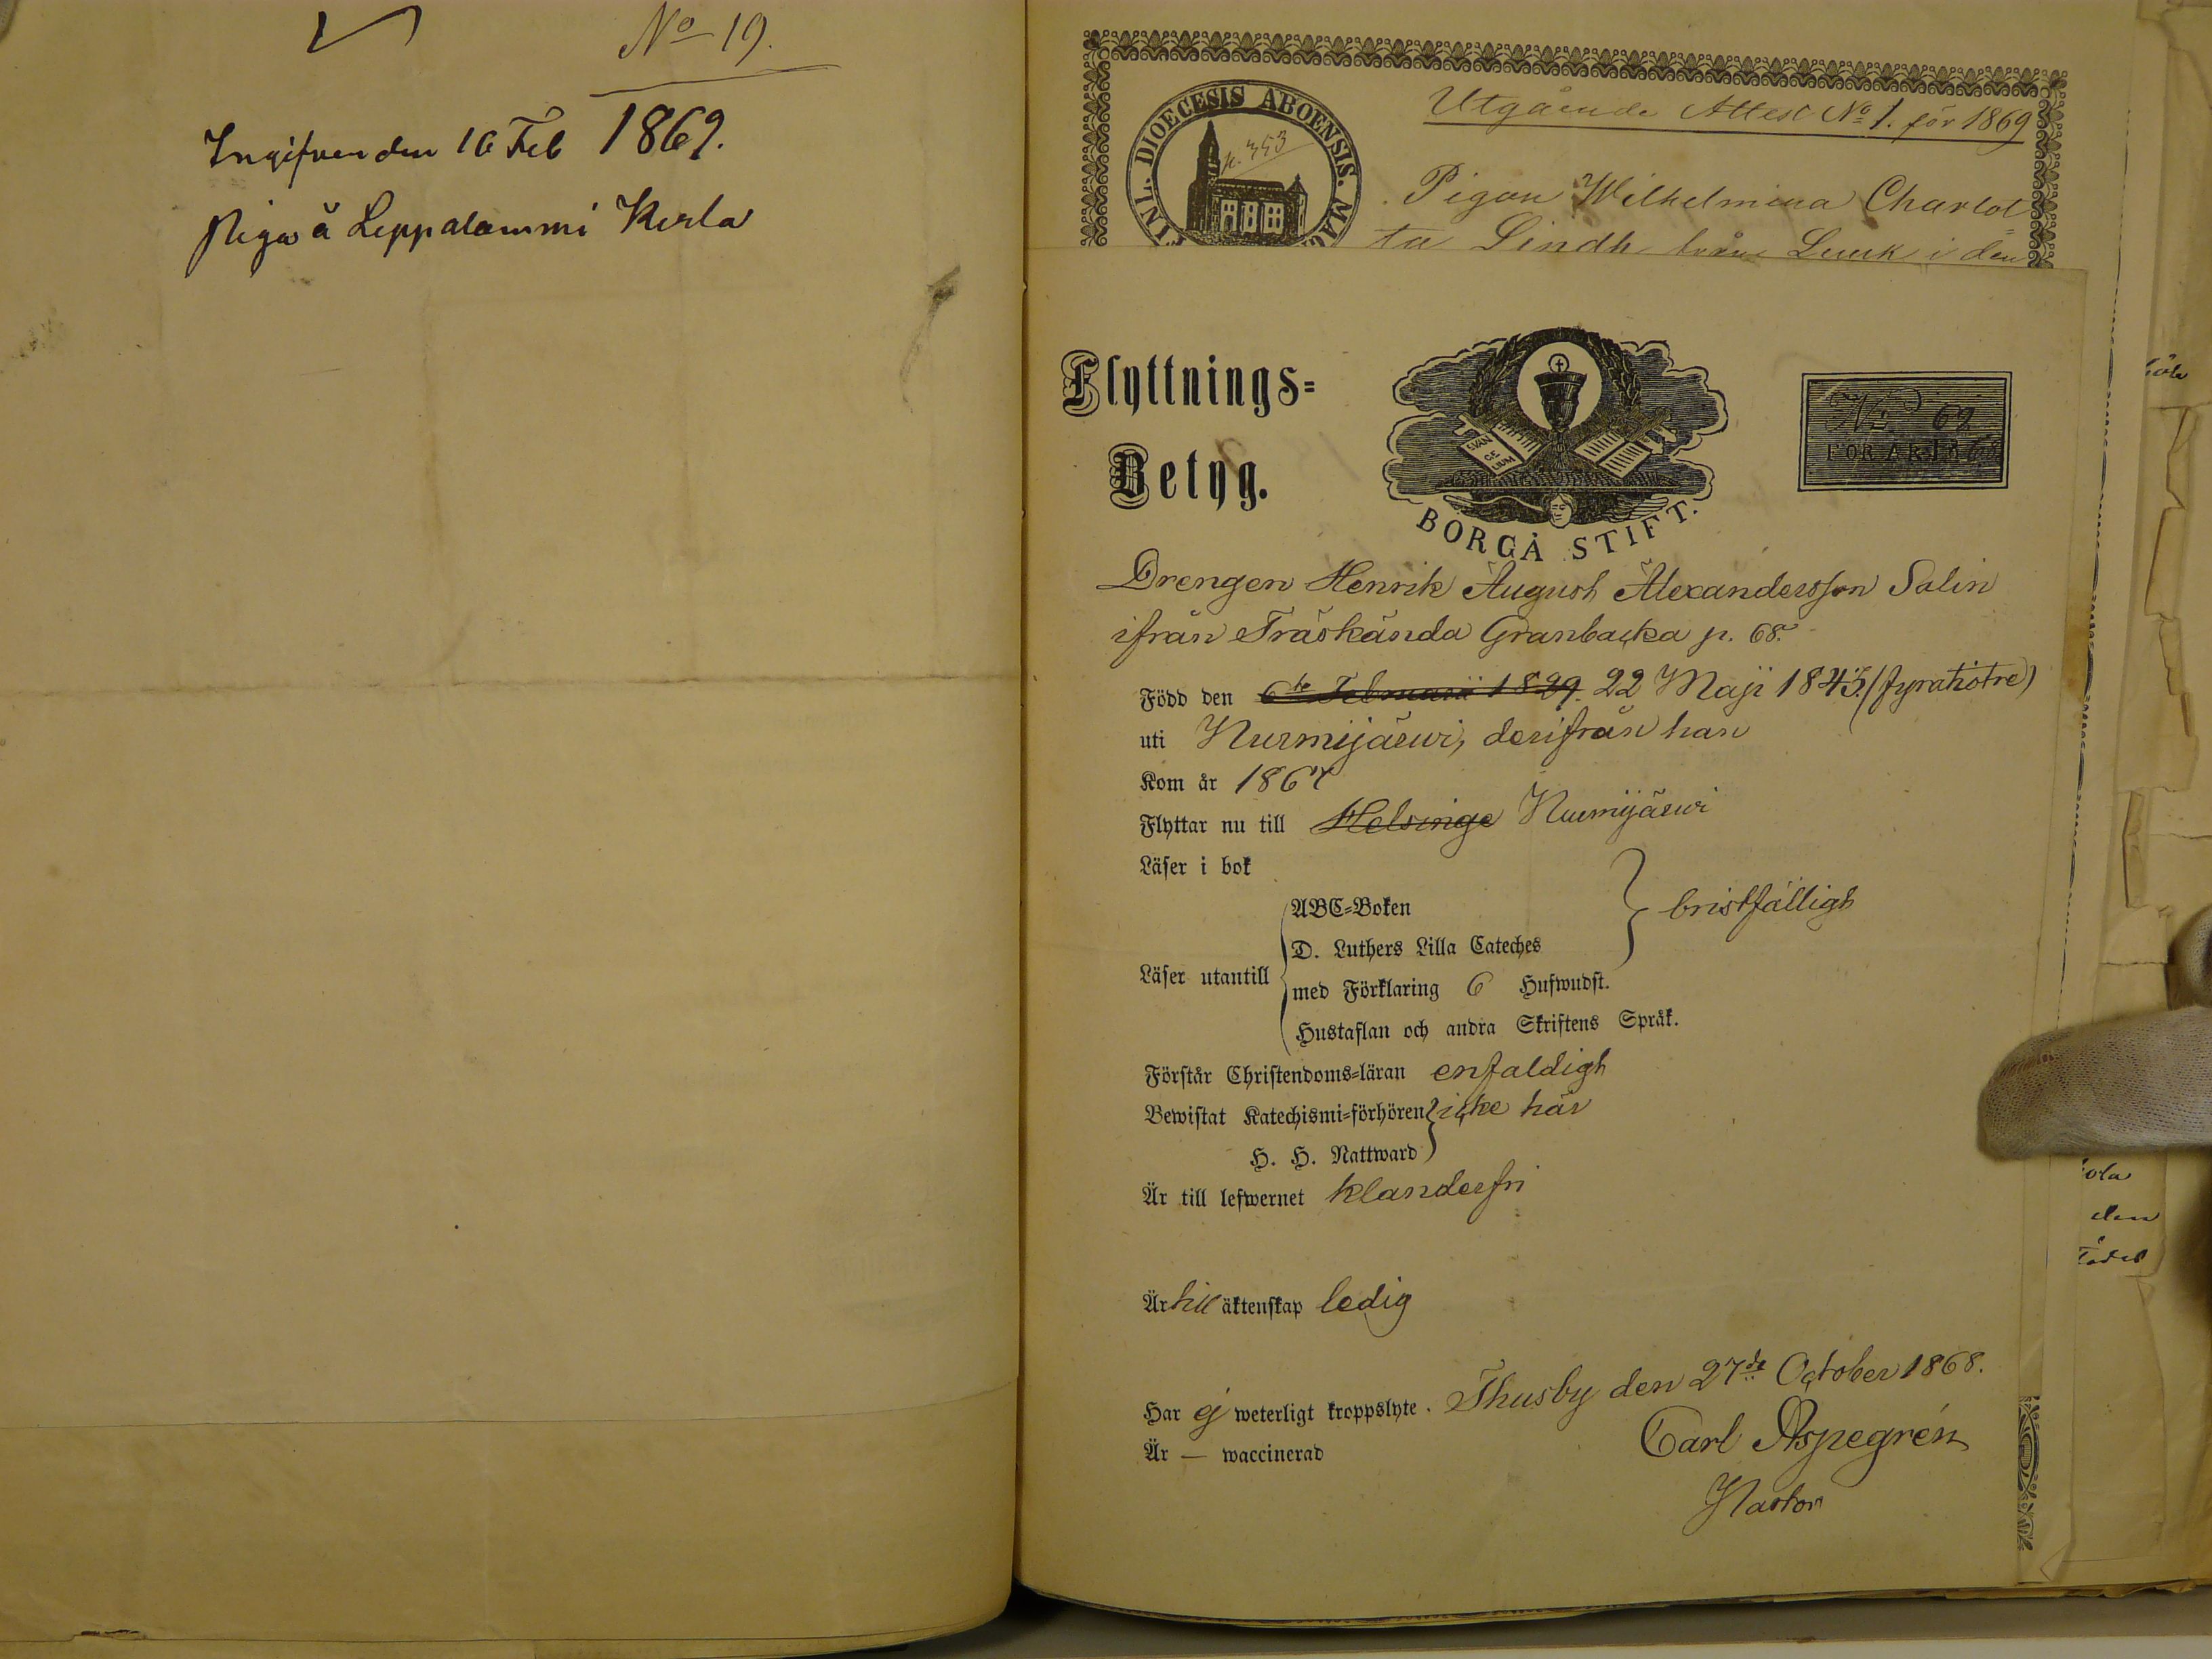 No 19.
Ingifven den 16 Feb 1869.
Piga å Leppalammi Kerla
FINL. DIOECESIS ABOENSIS. MAG
p. 353
Utgående Attest No 1. för 1869
Pigan Wilhelmina Charlot=
ta Lindh från Luuk i den
Flyttnings=
Betyg.
EVAN
GE
LIUM
BORGÅ STIFT.
No 69
FÖR ÅR 1868
Drengen Henrik August Alexandersson Salin
ifrån Träskända Granbacka p. 68.
Född den 6te Februarii 1829. 22 Maji 1843. (fyratiotre)
uti Nurmijärwi, derifrån han
Kom år 1867
Flyttar nu till Helsinge Nurmijärwi
Läser i bok
ABC=Boken
D. Luthers Lilla Cateches
bristfälligt
Läser utantill
med Förklaring 6 Hufwudst.
Hustaflan och andra Skriftens Språk.
Förstår Christendoms=läran enfaldigt
Bewistat Katechismi=förhören icke här
H. H. Nattward
Är till lefwernet klanderfri
Är till äktenskap ledig
Har ej weterligt kroppslyte. Thusby den 27de October 1868.
Är — waccinerad
Carl Aspegrén
Pastor
ola
den